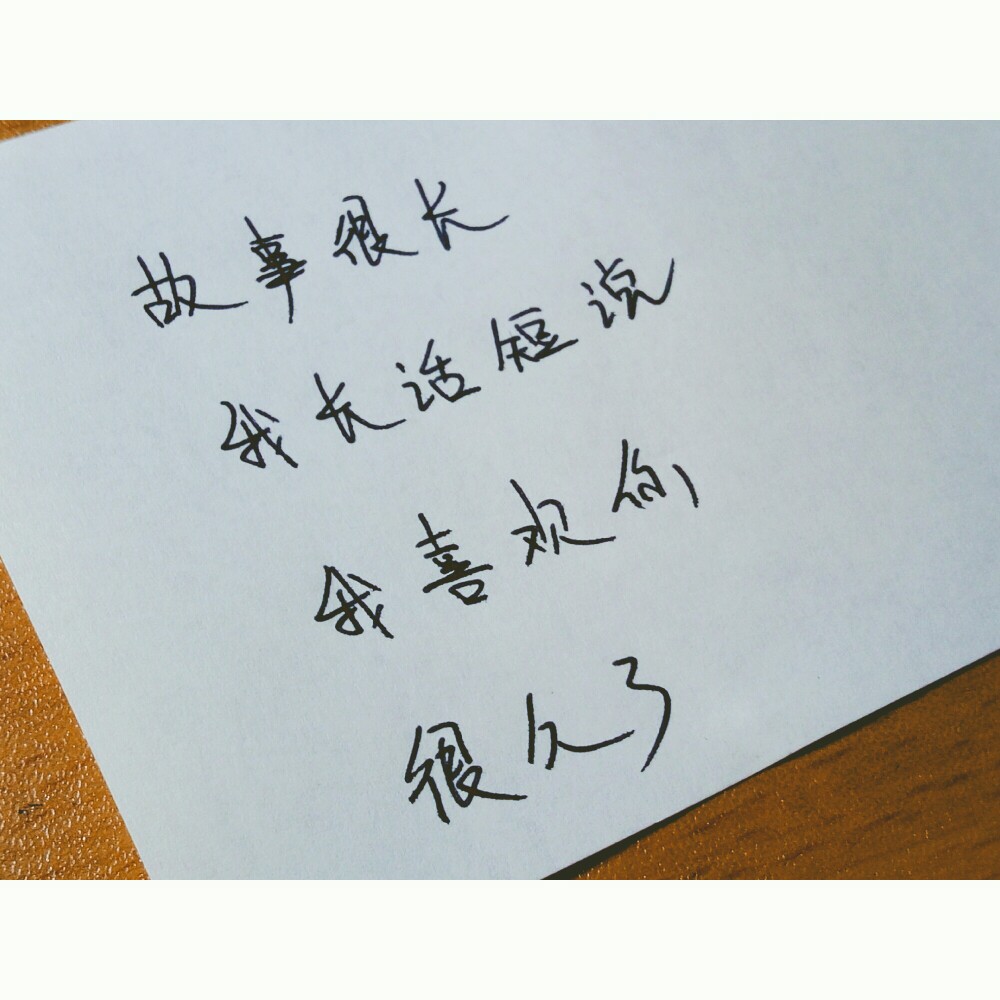 故事很长
我长话短说
我喜欢你
很久了